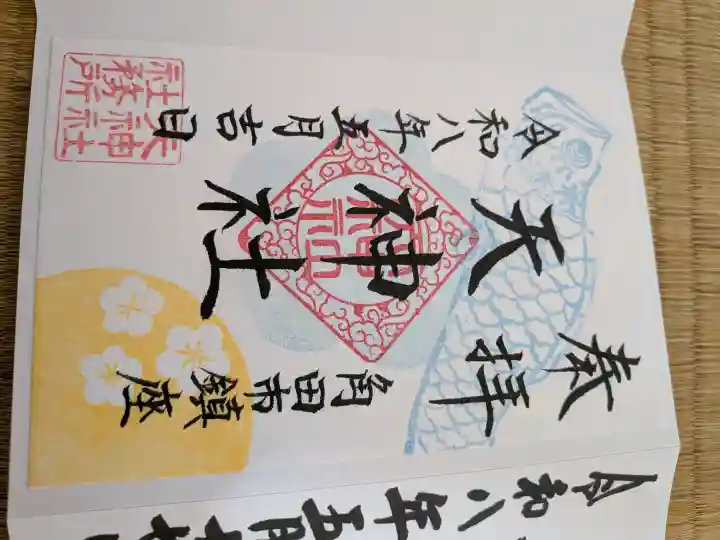 令和八年五月
奉拝
角田市鎮座
天神社
令和八年五月吉日